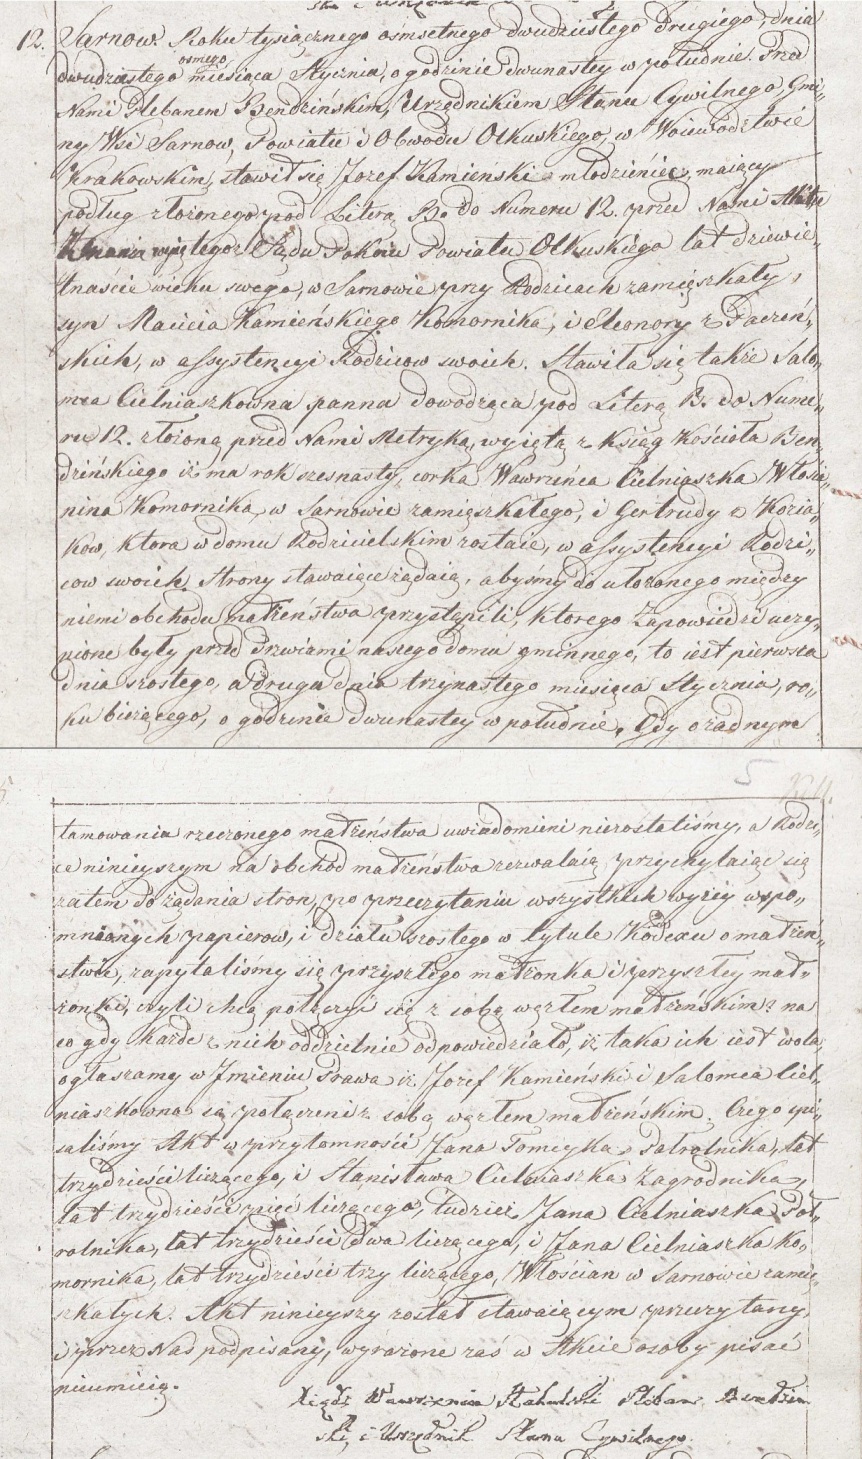 12. Sarnow. Roku tysiącznego ośmsetnego dwudziestego drugiego, dnia
dwudziestego osmego miesiąca Stycznia, o godzinie dwunastey w południe. Przed
Nami Plebanem Bendzińskim, Urzędnikiem Stanu Cywilnego, Gmi„
ny Wsi Sarnow, Powiatu i Obwodu Olkuskiego, w Woiewodztwie
Krakowskim, stawił się Jozef Kamieński młodzieniec, maiący
podług złożonego pod Literą B. do Numeru 12. przed Nami Aktu
Znania wyiętego z Sądu Pokoiu Powiatu Olkuskiego lat dziewie„
tnaście wieku swego, w Sarnowie przy Rodzicach zamięszkały,
syn Macieia Kamieńskiego Komornika, i Eleonory z Paczeń„
skich, w assystencyi Rodzicow swoich. Stawiła się także Salo„
mea Cielniaszkowna panna dowodząca pod Literą B. do Nume„
ru 12. złożoną przed Nami Metryką, wyiętą z Ksiąg Kościoła Ben„
dzińskiego iż ma rok szesnasty, corka Wawrzeńca Cielniaszka Włościa„
nina Komornika, w Sarnowie zamięszkałego, i Gertrudy z Kozia„
kow, ktora w domu Rodzicielskim zostaie, w assystencyi Rodzi„
cow swoich. Strony stawaiące żądaią, abyśmy do ułożonego między
niemi obchodu małżeństwa przystąpili, ktorego Zapowiedzi uczy„
nione były przed Drzwiami naszego domu gminnego, to iest pierwsza
dnia szostego, a druga dnia trzynastego miesiąca Stycznia, ro„
ku bieżącego, o godzinie dwunastey w południe. Gdy o żadnym
5
tamowania rzeczonego małżeństwa uwiadomieni niezostaliśmy, a Rodzi„
ce ninieyszym na obchod małżeństwa zezwalaią, przychylaiąc się
zatem do żądania stron, po przeczytaniu wszystkich wyżey wspo„
mnionych papierow, i działu szostego w tytule Kodexu o małżeń„
stwie, zapytaliśmy się przyszłego małżonka i przyszłey mał„
żonki, czyli chcą połączyć się z sobą węzłem małżeńskim? na
co gdy każde z nich oddzielnie odpowiedziało, iż taka ich iest wola,
ogłaszamy w Jmieniu Prawa iż Jozef Kamieński i Salomea Ciel„
niaszkowna są połączeni z sobą węzłem małżeńskim. Czego spi„
saliśmy Akt w przytomności Jana Tomczyka Połrolnika, lat
trzydzieści liczącego, i Stanisława Cielniaszka Zagrodnika,
lat trzydzieści pięć liczącego, tudzież Jana Cielniaszka Poł„
rolnika, lat trzydzieści dwa liczącego, i Jana Cielniaszka Ko„
mornika, lat trzydzieści trzy liczącego, Włościan w Sarnowie zamię„
szkałych. Akt ninieyszy został stawaiącym przeczytany,
i przez Nas podpisany, wyrażone zaś w Akcie osoby pisać
nieumieią.
Xiądz Wawrzeniec Pleban Bendziń
ski i Urzędnik Stanu Cywilnego.